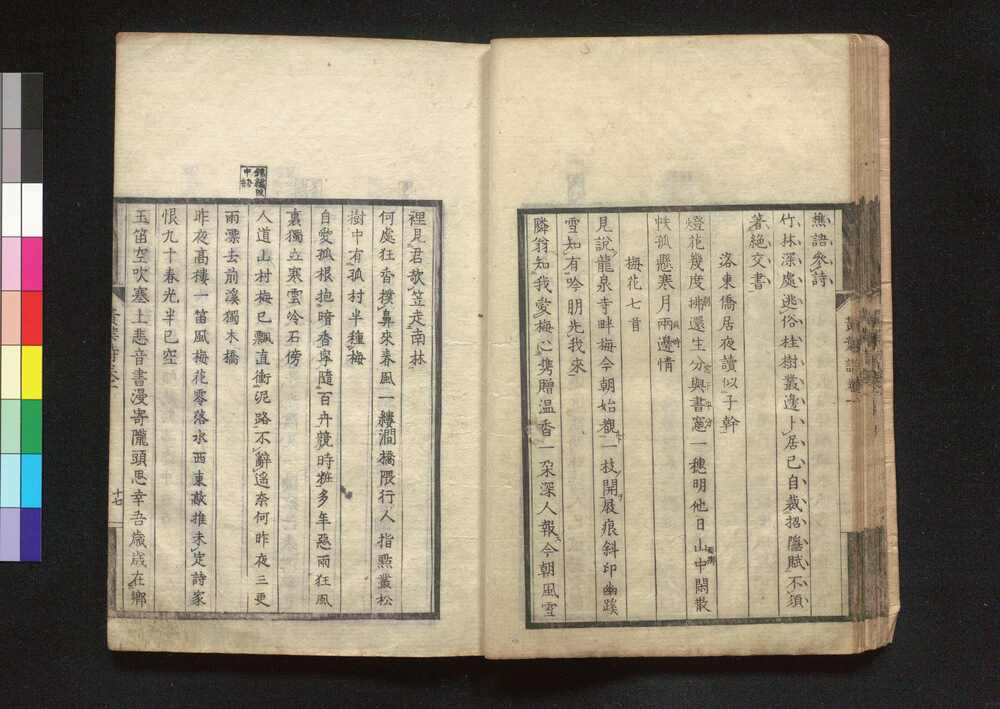 樵語參詩
竹林深處逃俗桂樹叢邊卜居已自裁招隱賦不須
著絶交書
洛東僑居夜讀似子幹
燈花幾度挑還生分與書窓一穗明他日山中閑散
帙孤懸寒月兩邊情
梅花七首
見說龍泉寺畔梅今朝始觀一枝開屐痕斜印幽蹊
雪知有吟朋先我來
隣翁知我愛梅心携贈温香一朶深人報今朝風雪
裡見君欹笠走南林
何處狂香撲鼻來春風一縷澗橋隈行人指點叢松
樹中有孤村半種梅
自愛孤根抱暗香寧隨百卉競時粧多年惡雨狂風
裏獨立寒雲冷石傍
人道山村梅已飄直衝泥路不辭遙奈何昨夜三更
雨漂去前溪獨木橋
昨夜高樓一笛風梅花零落水西東敲推未定詩家
恨九十春光半已空
玉笛空吹塞上悲音書漫寄隴頭思幸吾歲歲在鄉
十七